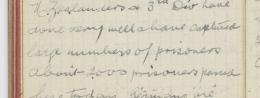 N. Zealanders & 3rd Div have
done very well & have captured
large numbers of prisoners
about 2000 prisoners passed
here today. Germans are